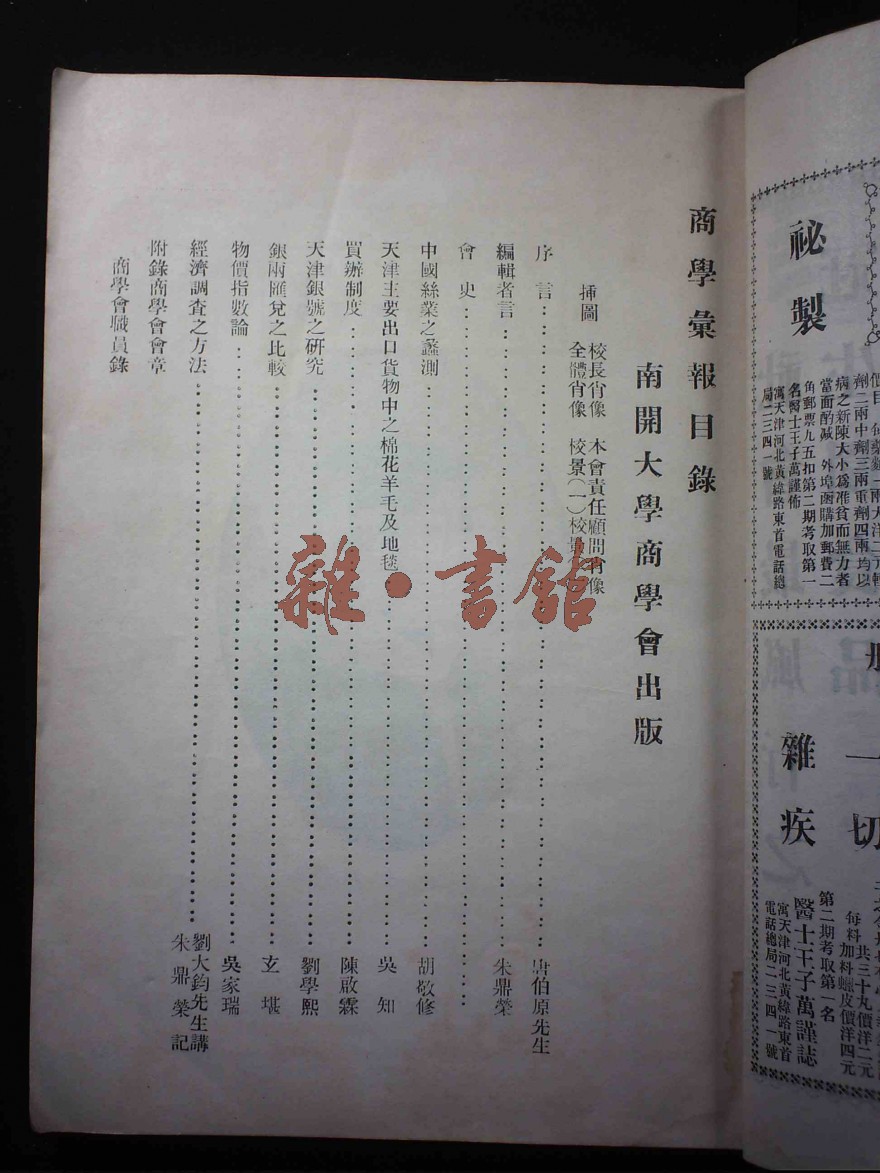 商學彙報目錄
南開大學商學會出版
挿圖 校長肖像 本會責任顧問肖像
全體肖像 校景(一)校景
序言 唐伯原先生
編輯者言 朱鼎榮
會史
中國絲業之蠡測 胡敬修
天津主要出口貨物中之棉花羊毛及地毯 吳知
買辦制度 陳啟霖
天津銀號之研究 劉學熙
銀兩匯兌之比較 玄堪
物價指數論 吳家瑞
經濟調查之方法 劉大鈞先生講
朱鼎榮記
附錄商學會會章
商學會職員錄
雜·書館
祕製
劑二兩中劑三兩重劑四兩均以
病之新陳大小爲准貧而無力者
當面酌减 外埠函購加郵費二
角郵票九五扣第二期考取第一
名醫士王子萬謹佈
寓天津河北黃緯路東首電話總
局二三四一號
一切
雜疾
共三十丸價洋二元
每料加料蠟皮價洋四元
第二期考取第一名
醫士王子萬謹誌
寓天津河北黃緯路東首
電話總局二三四一號